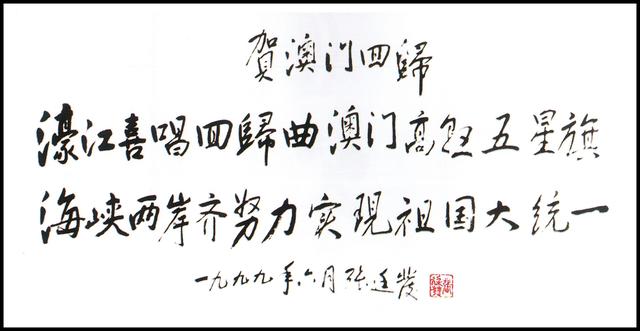 賀澳门回歸
濠江喜唱回歸曲澳门高悬五星旗
海峡两岸齐努力实現祖国大统一
一九九九年六月 张廷發